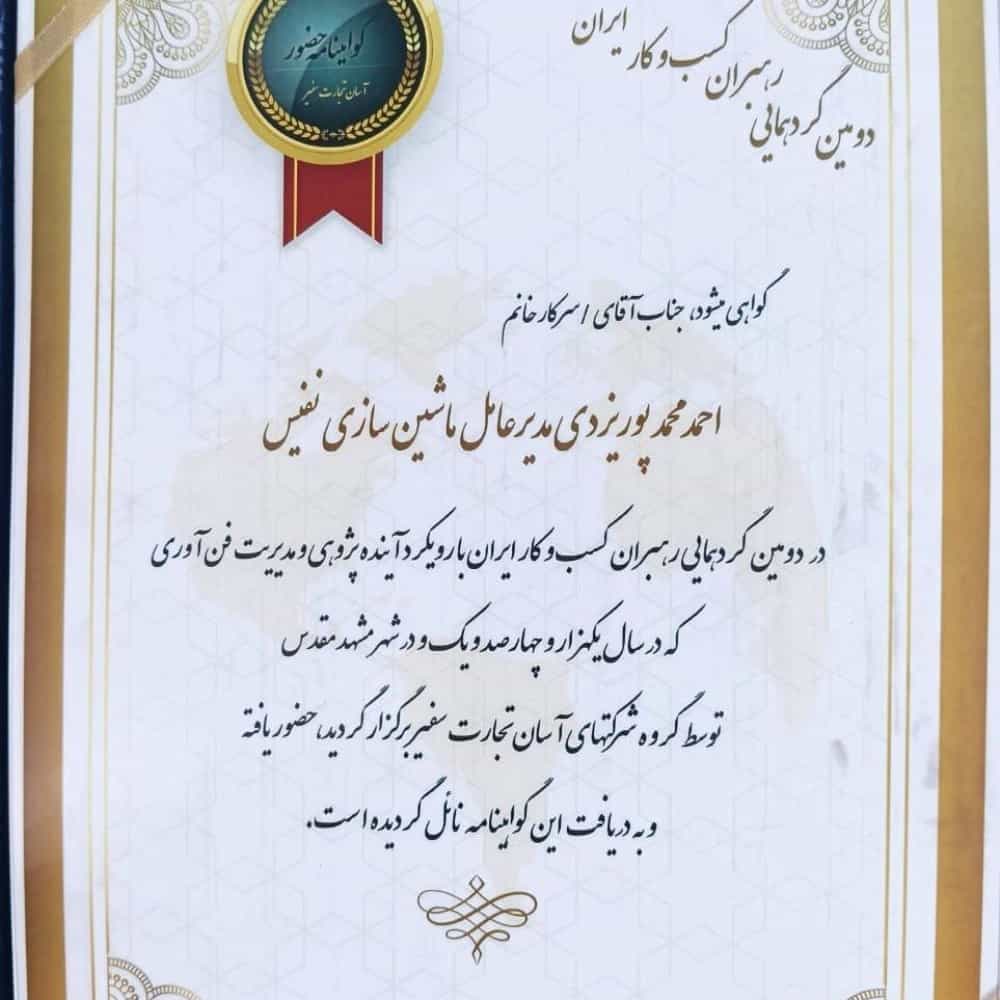 دومین گردهمایی
رهبران کسب و کار ایران
گواهینامه حضور
آسان تجارت سفیر
گواهی میشود، جناب آقای / سرکار خانم
احمد محمد پور یزدی مدیرعامل ماشین سازی نفیس
در دومین گردهمایی رهبران کسب و کار ایران با رویکرد آینده پژوهی و مدیریت فن آوری
که در سال یکهزار و چهارصد و یک و در شهر مشهد مقدس
توسط گروه شرکتهای آسان تجارت سفیر برگزار گردید، حضور یافته
و به دریافت این گواهینامه نائل گردیده است.